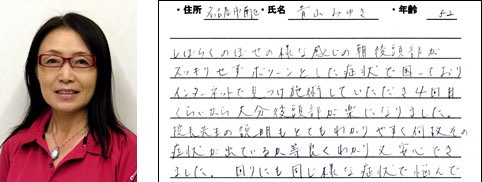 ・住所 名古屋市南区 ・氏名 青山みゆき ・年齢 52
しばらくのぼせの様な感じの頭後頭部が
スッキリせずボワーンとした症状で困っており
インターネットで見つけ施術していただき4回目
くらいから大分後頭部が楽になりました。
院長先生の説明もとてもわかりやすく何故その
症状が出ているか等良くわかり又安心でき
ました。回りにも同じ様な症状で悩んで